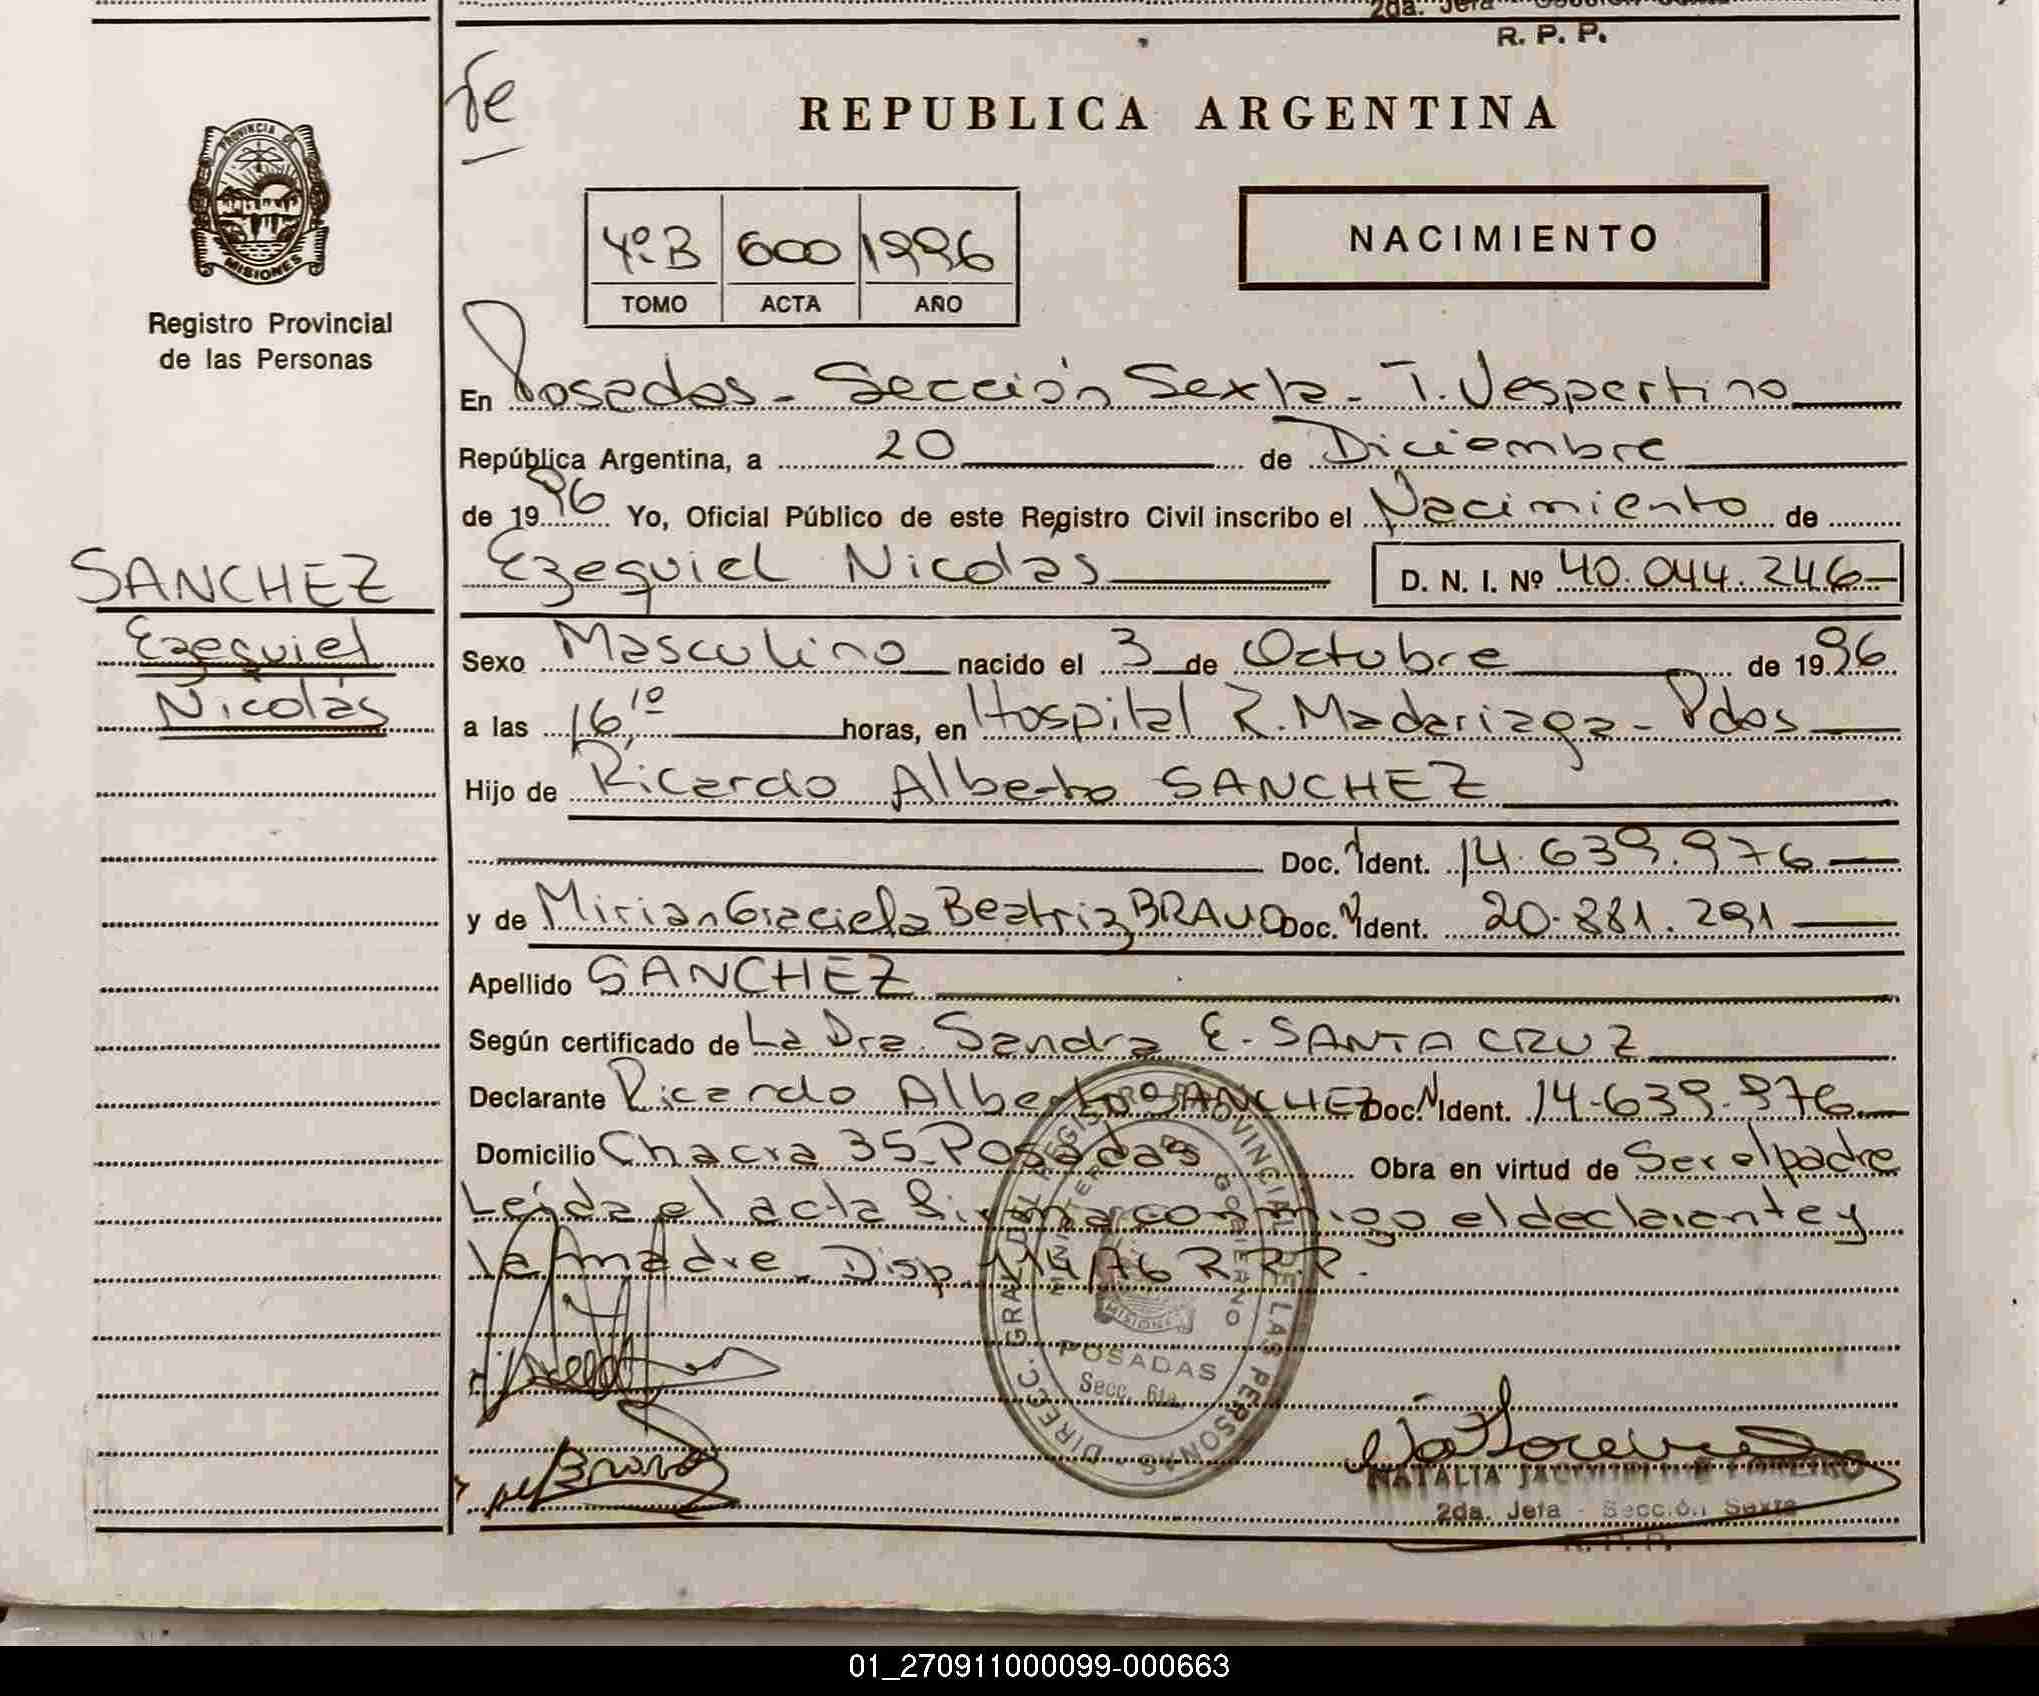 R. P. P.
REPUBLICA ARGENTINA
PROVINCIA DE
MISIONES
Registro Provincial
de las Personas
4º.B 600 1996
TOMO ACTA AÑO
NACIMIENTO
En Posadas - Sección Sexta - T. Vespertino
República Argentina, a 20 de Diciembre
de 1996 Yo, Oficial Público de este Registro Civil inscribo el Nacimiento de
Ezequiel Nicolás D. N. I. Nº 40.044.246
SANCHEZ
Ezequiel
Nicolás
Sexo Masculino nacido el 3 de Octubre de 1996
a las 16,10 horas, en Hospital R. Madariaga - Pdas
Hijo de Ricardo Alberto SANCHEZ
Doc. Ident. 14.639.976
y de Mirian Graciela Beatriz BRAVO Doc. Ident. 20.881.291
Apellido SANCHEZ
Según certificado de La Dra. Sandra E. SANTA CRUZ
Declarante Ricardo Alberto SANCHEZ Doc. Ident. 14.639.976
Domicilio Chacra 35-Posadas Obra en virtud de Ser el padre
Leída el acta firma conmigo el declarante y
la madre - Disp. 114/76 R.R.P.
DIRECC. GRAL. DEL REGISTRO PROVINCIAL DE LAS PERSONAS
MINISTERIO DE GOBIERNO
MISIONES
POSADAS
Secc. 6ta.
Bravo
NATALIA
2da. Jefa - Sección Sexta
R. P. P.
01_270911000099-000663